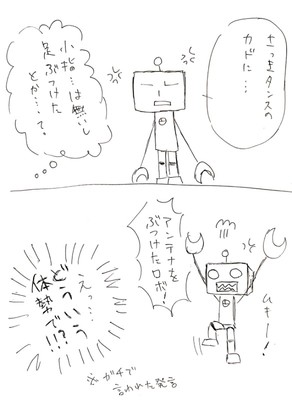 さっきタンスの
カドに…
小指…は無いし
足ぶつけた
とか……？
アンテナを
ぶつけたロボ！
ムキー！
えっ…
どういう
体勢で!!?
※ガチで
言われた発言